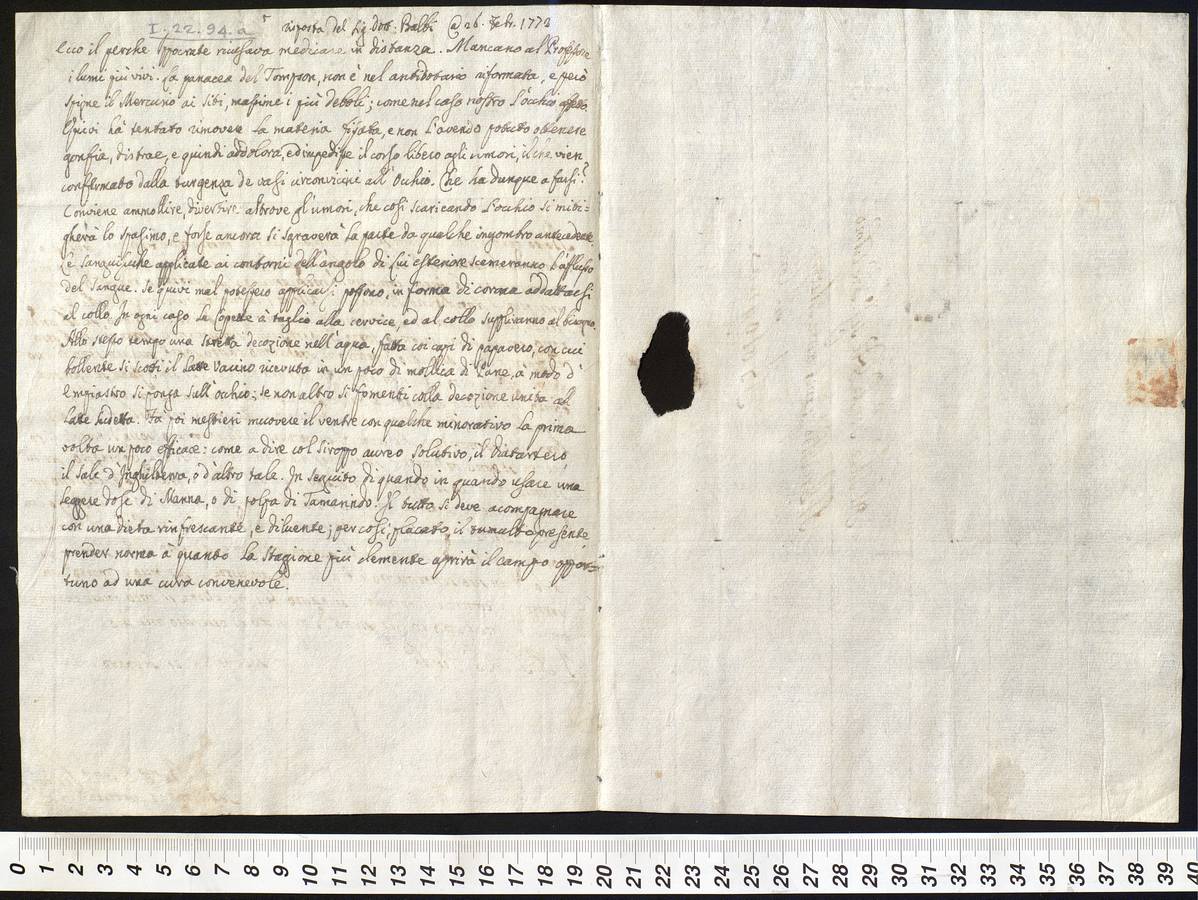 I. 22. 94. a risposta del Sig Dott: Balbi @ 26. Febr. 1772
Ecco il perche Ippocrate ricusava medicare in distanza. Mancano al Professore
i lumi più vivi. La panacea del Tompson, non è nel antidotario riformata, e però
spigne il Mercurio ai siti, massime i più deboli; come nel caso nostro l'occhio affetto.
Quivi hà tentato rimovere la materia fissata, e non l'avendo potuto ottenere
gonfia, distrae, e quindi addolora, ed impedisse il corso libero agli umori, il che vien
confermato dalla turgenza de vasi circonvicini all'Occhio. Che ha dunque a farsi?
Conviene ammollire, divertire altrove gl'umori, che così scaricando l'occhio si miti=
gherà lo spasimo, e forse ancora si sgraverà la parte da qualche ingombro antecedente
Le Sanguisughe applicate ai contorni dell'angolo di lui esteriore scemeranno l'afflusso
del Sangue. Se quivi mal potessero applicarsi possono, in forma di corona addattarsi
al collo. In ogni caso le Copette à taglio alla cervice, ed al collo suppliranno al bisogno.
Allo stesso tempo una stretta decozione nell'aqua, fatta coi capi di papavero, con cui
bollente si scotti il latte vacino ricevuta in un poco di mollica di Pane, à modo d'
Empiastro si ponga sull'occhio: se non altro si fomenti colla decozione unita al
latte sudetta. Fà poi mestieri muovere il ventre con qualche minorativo la prima
volta un poco efficace: come a dire col siroppo aureo solutivo, il Diatartero,
il sale d'Inghilterra, o d'altro tale. In seguito di quando in quando usare una
leggere dose di Manna, o di polpa di Tamarindo. Il tutto si deve acompagnare
con una dieta rinfrescante, e diluente; per così, placato, il tumulto presente
prender norma à quanto la Stagione più clemente aprirà il campo oppor=
tuno ad una cura convenevole.
0 1 2 3 4 5 6 7 8 9 10 11 12 13 14 15 16 17 18 19 20 21 22 23 24 25 26 27 28 29 30 31 32 33 34 35 36 37 38 39 40